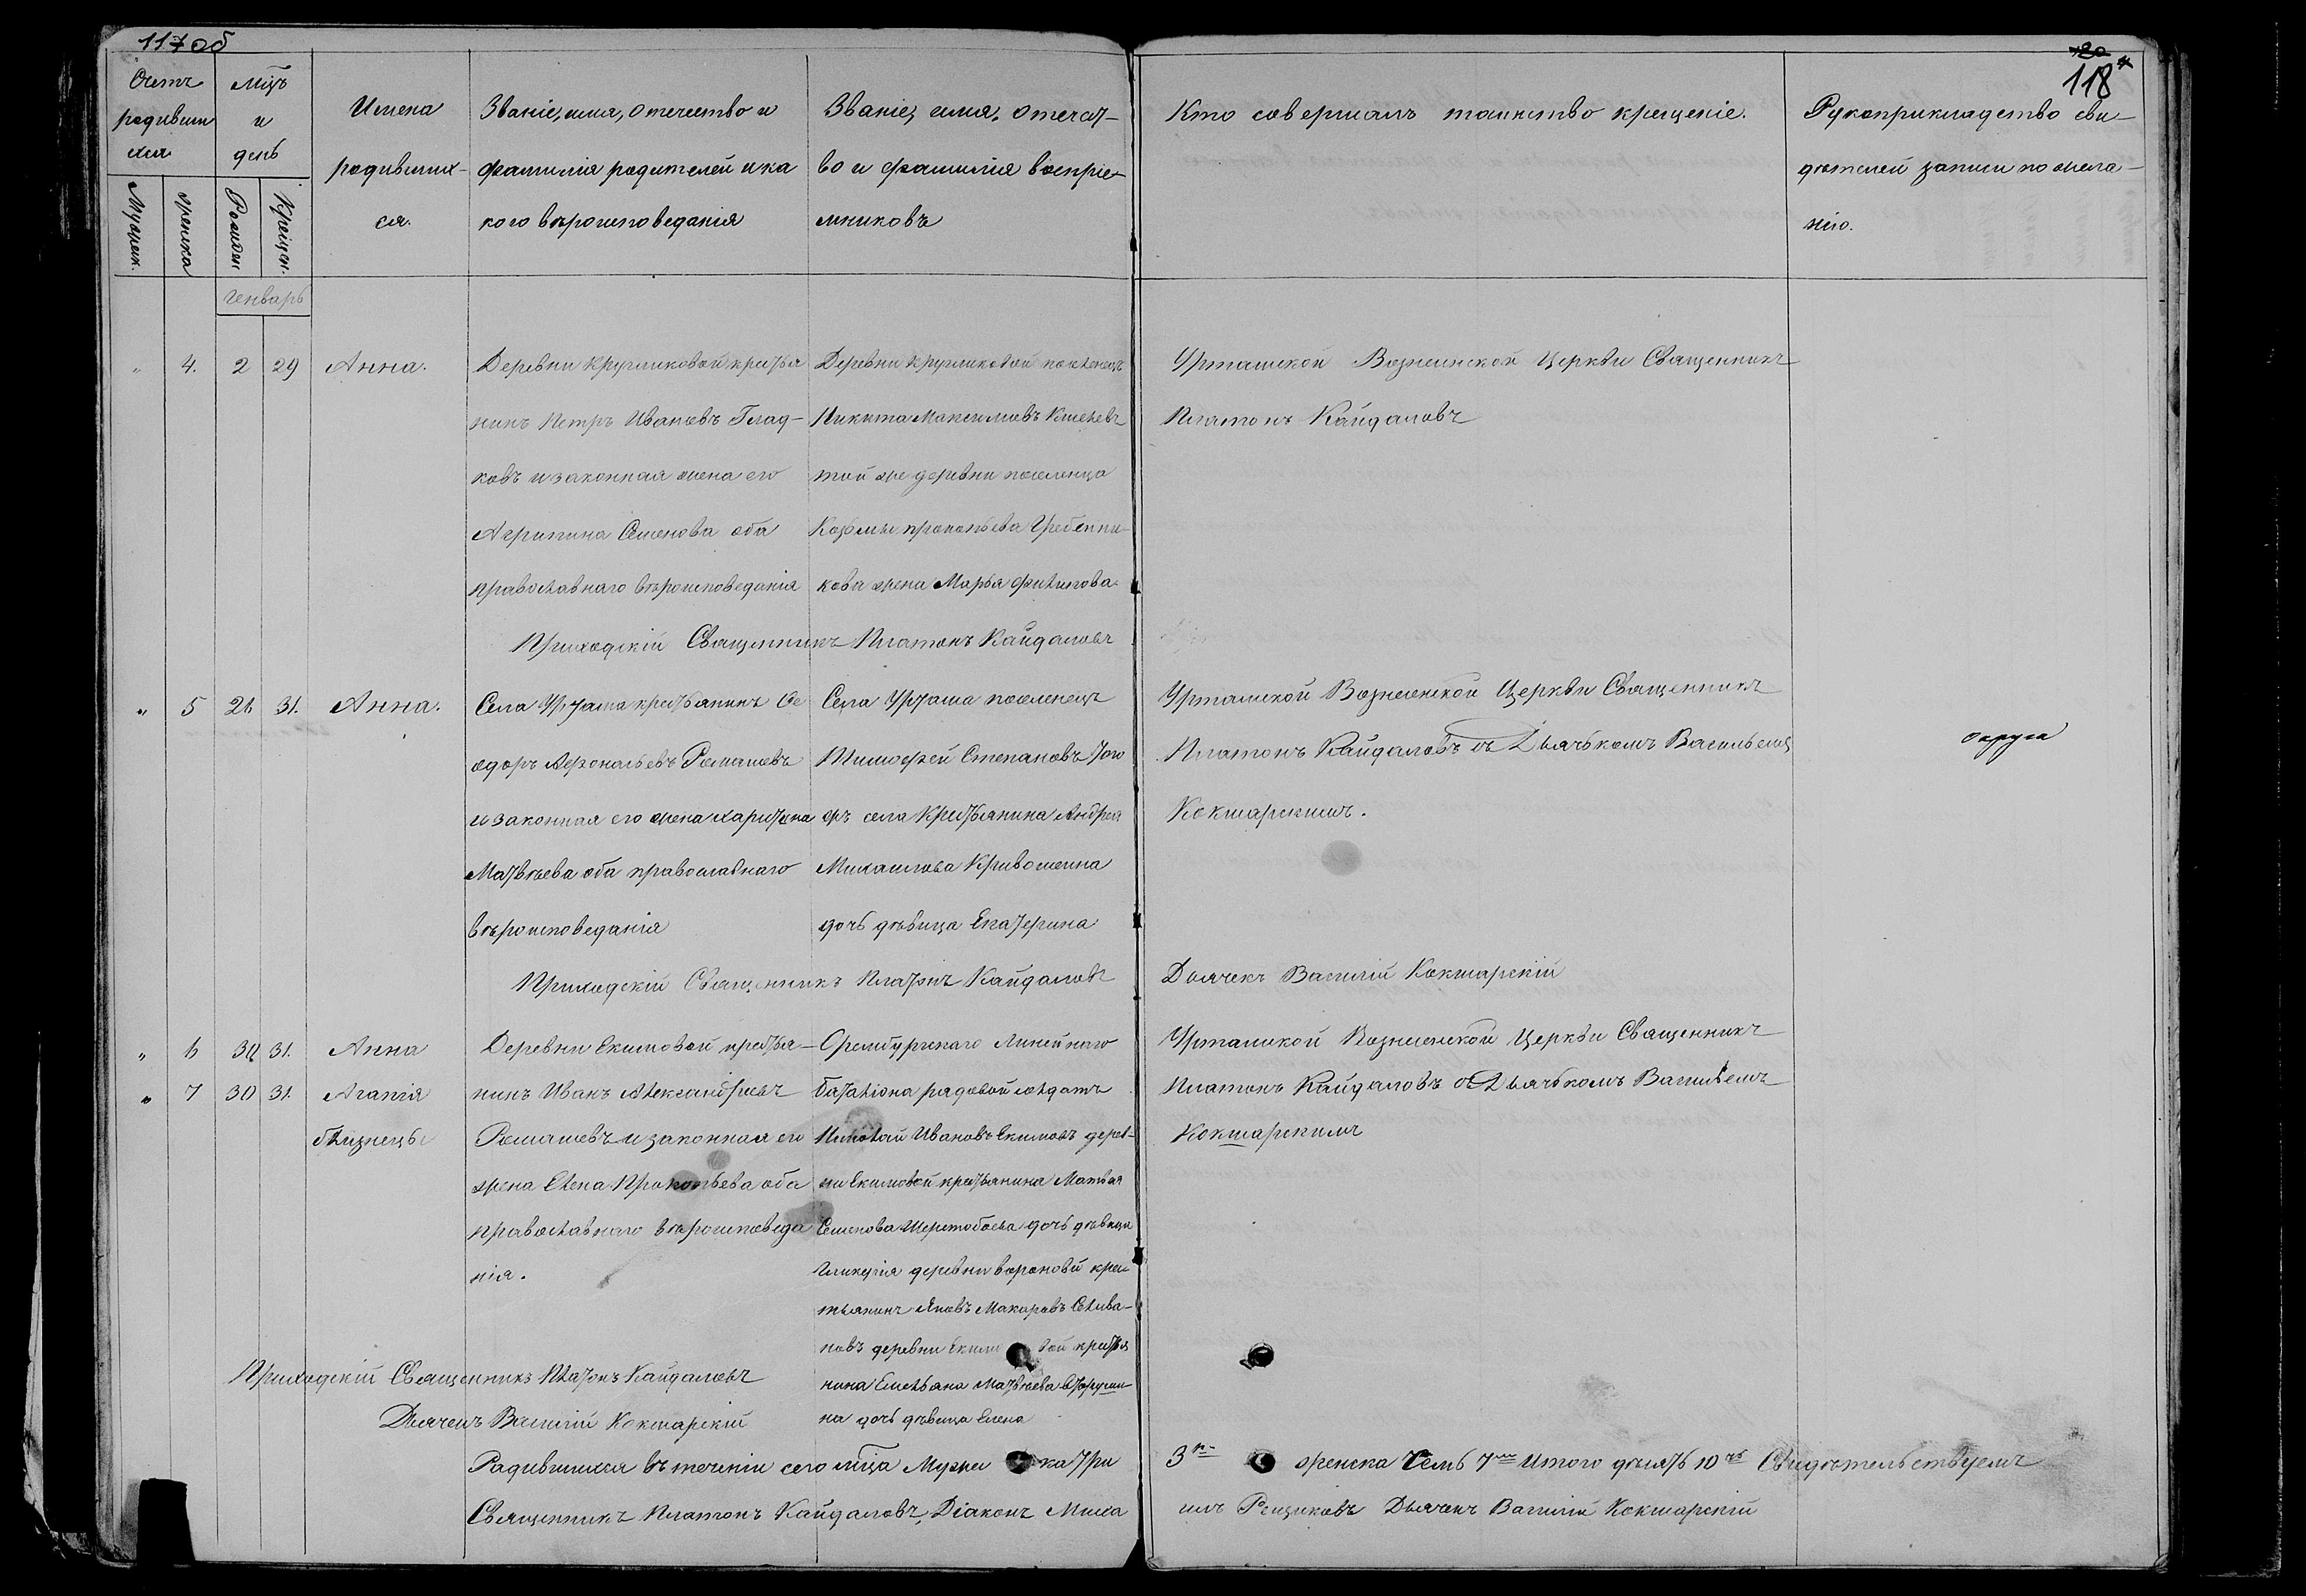 117 об
118
Счетъ родившихся
Мѣсяцъ и день
Имена родившихся.
Званіе, имя, отечество и фамилія родителей и какого вѣроисповеданія
Званіе, имя, отечество и фамилія воспріемниковъ
Кто совершалъ таинство крещеніе.
Рукоприкладство свидѣтелей записи по желанію.
Мужеск.
женска
Рожден
Крещен.
Генварь
" 4. 2 29 Анна.
Деревни Кругликовой крестья
нинъ Петръ Ивановъ Глад-
ковъ и законная жена его
Агрипина Семенова оба
православнаго вѣроисповеданія
Деревни Кругликовой поселенецъ
Никита Максимовъ
той же деревни поселенца
Козмы Прокопьева Гребенни-
кова жена Марья Филипова
Урташской Вознесенской Церкви Священникъ
Платонъ Кайдаловъ
Приходскій Священникъ Платонъ Кайдаловъ
" 5 21 31. Анна.
Села Урташа крестьянинъ Ѳе
одоръ Аѳонасьевъ Ромашевъ
и законная его жена Харитина
Матвѣева оба православнаго
вѣроисповеданія
Села Урташа поселенецъ
Тимофей Степановъ того
жъ села Крестьянина Андрея
Михаилова Кривошеина
дочь дѣвица Екатерина
Урташской Вознесенской Церкви Священникъ
Платонъ Кайдаловъ съ Дьячькомъ Васильемъ
Кокшарскимъ.
округа
Приходскій Священникъ Платонъ Кайдаловъ
Дьячекъ Василій Кокшарскій
" 6 30 31. Анна
" 7 30 31. Агапія
близнецы
Деревни Екимовой крестья-
нинъ Иванъ Александровъ
Ромашевъ и законная его
жена Елена Прокопьева оба
православнаго вѣроисповеда
нія.
Оренбургскаго Линейнаго
баталіона рядовой солдатъ
Николай Ивановъ Екимовъ дерев-
ни Екимовой крестьянина Матвея
Семенова дочь дѣвица
Гликерія деревни Вороновой крес-
тьянинъ Яковъ Макаровъ Селива-
новъ деревни Екимовой крестья
нина Емельяна Матвѣева
на дочь дѣвица Елена
Урташской Вознесенской Церкви Священникъ
Платонъ Кайдаловъ съ Дьячькомъ Васильемъ
Кокшарскимъ
Приходскій Священникъ Платонъ Кайдаловъ
Дьячекъ Василій Кокшарскій
Родившихся въ теченіи сего мѣсяца Мужеска три 3 женска семь 7 Итого десять 10 Свидѣтельствуемъ
Священникъ Платонъ Кайдаловъ, Діаконъ Михаилъ Рещиковъ Дьячекъ Василій Кокшарскій